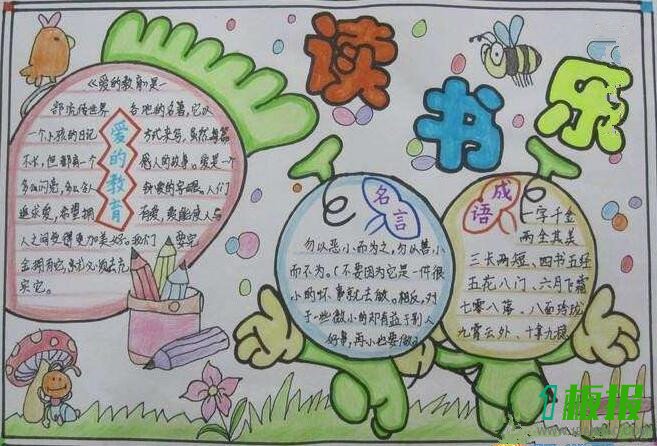 读书乐
《爱的教育》是一
部流传世界 各地的名著,它以
一个小孩的日记 方式来写,虽然每篇
不长,但都有一个 感人的故事。爱是一个
多么闪亮,多么令人 钟爱的字眼。人们
追求爱,希望拥 有爱,爱能使人与
人之间变得更加美好。我们 要完
全拥有它,就必须去充
实它。
爱的教育
名言
勿以恶小而为之,勿以善小
而不为。(不要因为它是一件很
小的坏事就去做。相反,对
于一些微小的却有益于别人
好事,再小也要做。)
成语
一字千金
两全其美
三长两短、四书五经
五花八门、六月飞霜
七零八落、八面玲珑
九霄云外、十拿九稳
板报